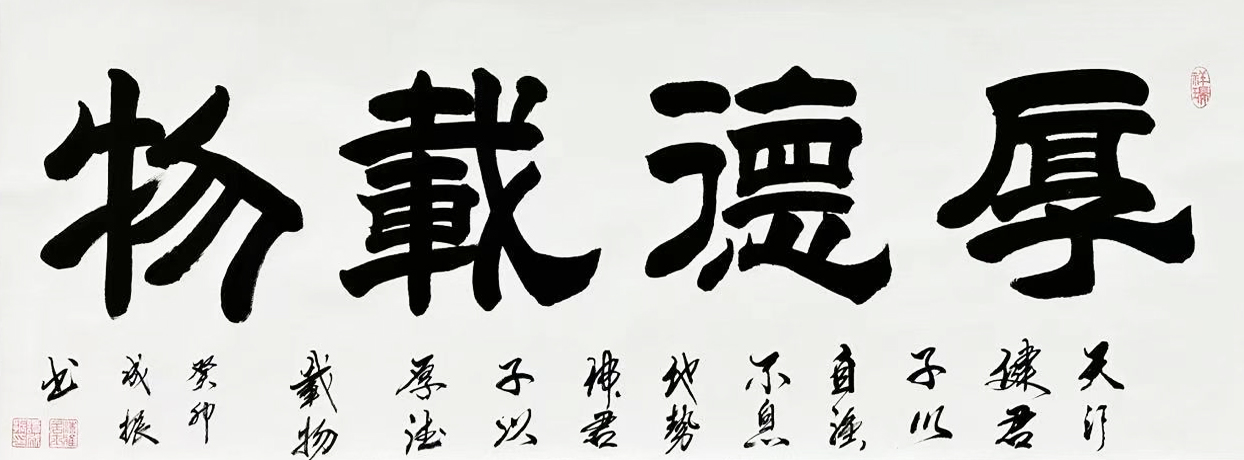 厚德載物
天行
健君
子以
自強
不息
地勢
坤君
子以
厚德
載物
癸卯
成振
书